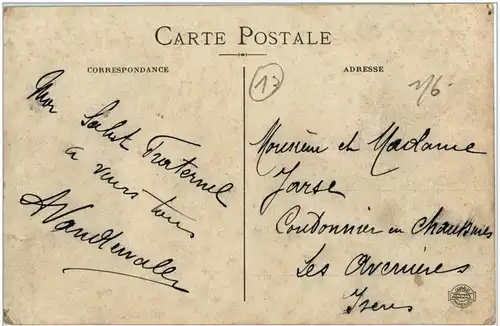 CARTE POSTALE
CORRESPONDANCE
ADRESSE
17
Mon Salut Fraternel
a vous tous
AVandewalle
Monsieur et Madame
Jarse
Coudonnier en Chaussures
Les Avenières
Isère